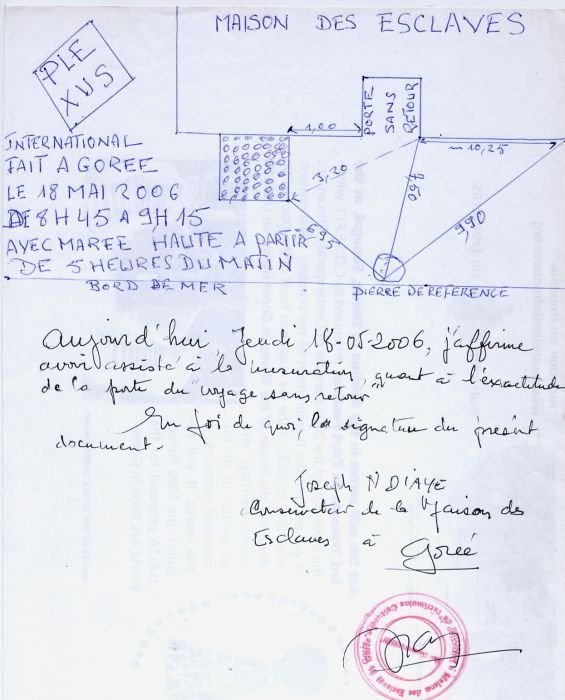 MAISON DES ESCLAVES
PLE
XUS
PORTE
SANS
RETOUR
1,00
10,25
3,20
7,50
6,95
9,90
INTERNATIONAL
FAIT A GOREE
LE 18 MAI 2006
DE 8H45 A 9H15
AVEC MAREE HAUTE A PARTIR
DE 5 HEURES DU MATIN
BORD DE MER
PIERRE DE REFERENCE
Aujourd'hui, Jeudi, 18-05-2006, j'affirme
avoir assisté à la mesuration, quant à l'exactitude
de la porte du "voyage sans retour"
En foi de quoi, la signature du présent
document.
Joseph NDIAYE
Conservateur de la Maison des
Esclaves à Gorée
Maison des Esclaves